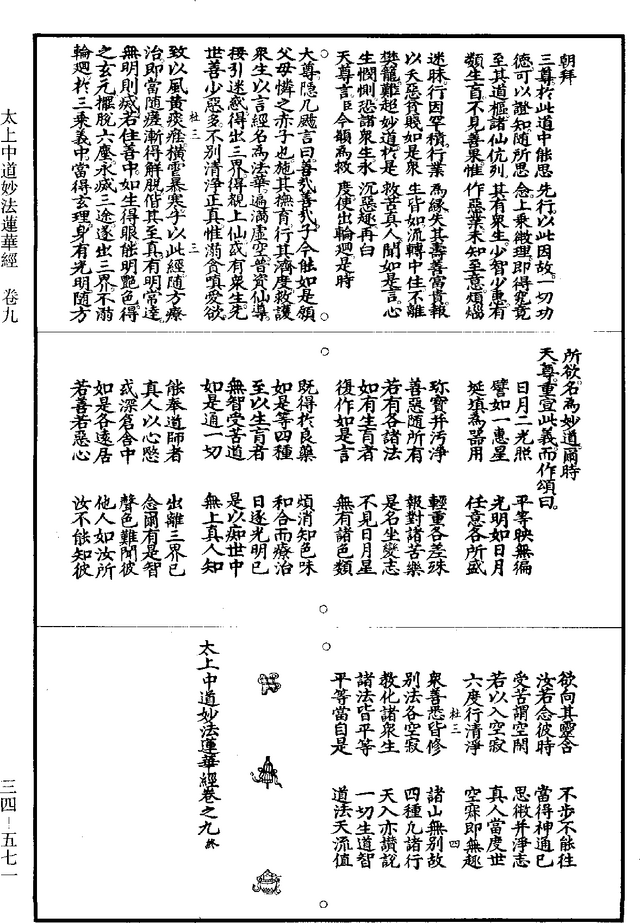 朝拜
三尊於此道中能思先行以此因故一切功
德可以證知隨所思念上乘微理即得究竟
至其道樞諸仙伉列其有衆生少智少惠有
類生盲不見善果惟作惡業未知至意煩惱
迷昧行因罕積行業爲緣失其壽善富貴報
以天惡貧賤如是衆生皆如流轉中住不離
樊籠難超妙道於是救苦真人聞如是言心
生憫惻恐諸衆生永沉惡趣再白
天尊言臣今願爲救度使出輪迴是時
大尊隱几颺言曰善哉善哉子今能如是願
父母憐之赤子也施其撫育行其濟度救護
衆生以言經名爲法華遍滿虛空普資仙導
接引迷惑得出三界得覩上仙或有衆生先
世善少惡多不別清淨正真惟溺貪嗔愛欲
杜三 三
致以風黃痰癊横雲暴寒子以此經隨方療
治即當隨瘥漸得解脫偕其至真有明常達
無明則滅若住善中如生得眼能明艷色得
之玄元擺脫六塵永滅三途遂出三界不溺
輪迴於三乘義中當得玄理身有光明隨方
所欲名爲妙道爾時
天尊重宣此義而作頌曰
日月二光照 平等映無徧
譬如一惠星 光明如日月
埏塡爲器用 任意各所盛
珎寶并污淨 輕重各差殊
善惡隨所有 報對諸苦樂
若有各諸法 是名坐變志
如有生盲者 不見日月星
復作如是言 無有諸色類
既得於良藥 煩消知色味
如是等四種 和合而療治
至以生盲者 日逐光明已
無智受苦道 是以痴世中
如是通一切 無上真人知
能奉道師者 出離三界已
真人以心愍 念爾有是智
或深宮舍中 聲色難聞彼
如是各遠居 他人如汝所
若善若惡心 汝不能知彼
欲向其靈含 不步不能往
汝若念彼時 當得神通已
受苦謂空閑 思微并淨志
若以入空寂 真人當度世
六度行清淨 空寂即無趣
杜三 四
衆善悉皆修 諸山無別故
別法各空寂 四種凢諸行
教化諸衆生 天入亦讚說
諸法皆平等 一切生道智
平等當自是 道法天流值
太上中道妙法蓮華經卷之九 終
太上中道妙法蓮華經 卷九
三四-五七一